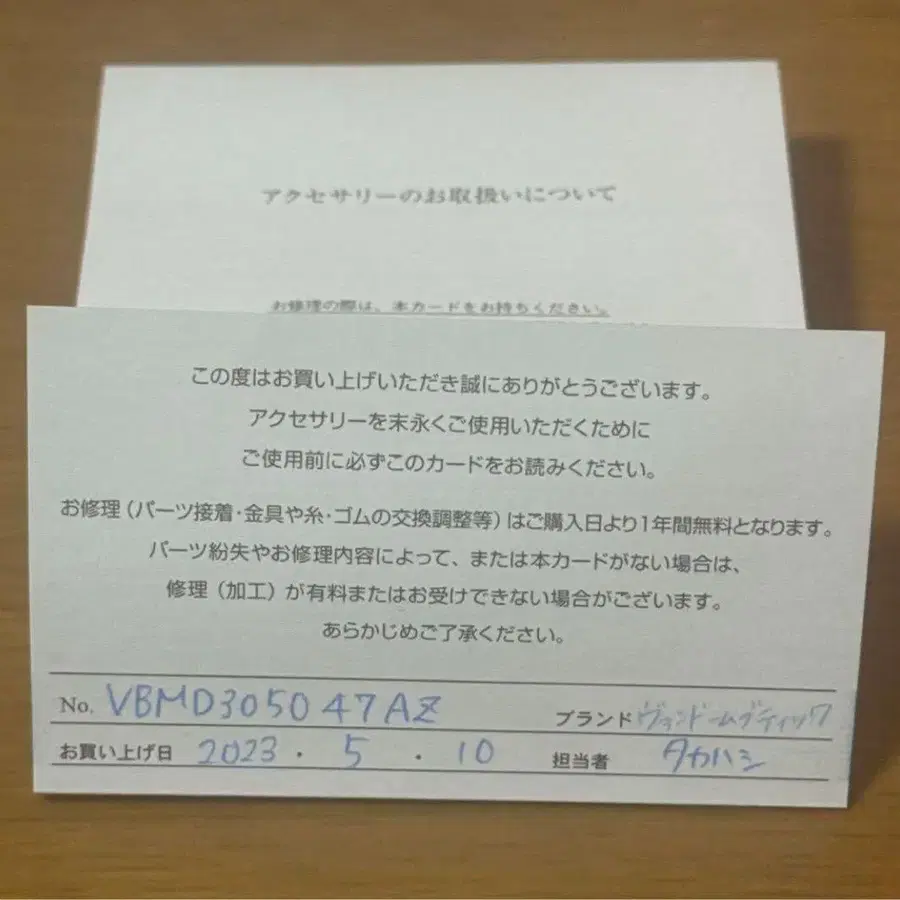 アクセサリーのお取扱いについて
お修理の際は、本カードをお持ちください。
この度はお買い上げいただき誠にありがとうございます。
アクセサリーを末永くご使用いただくために
ご使用前に必ずこのカードをお読みください。
お修理(パーツ接着・金具や糸・ゴムの交換調整等)はご購入日より1年間無料となります。
パーツ紛失やお修理内容によって、または本カードがない場合は、
修理(加工)が有料またはお受けできない場合がございます。
あらかじめご了承ください。
No. VBMD305047AZ ブランド ヴァンドームブティック
お買い上げ日 2023・5・10 担当者 タカハシ